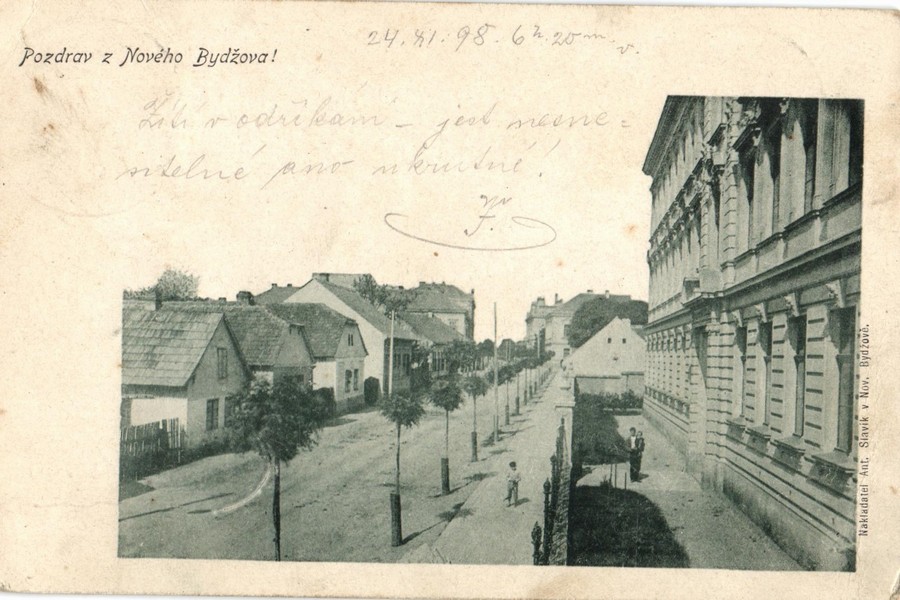 Pozdrav z Nového Bydžova!
24. XI. 98. 6h. 20m. v.
Žíti v odříkání – jest nesne=
sitelné ano ukrutné!
Nakladatel Ant. Slavík v Nov. Bydžově.